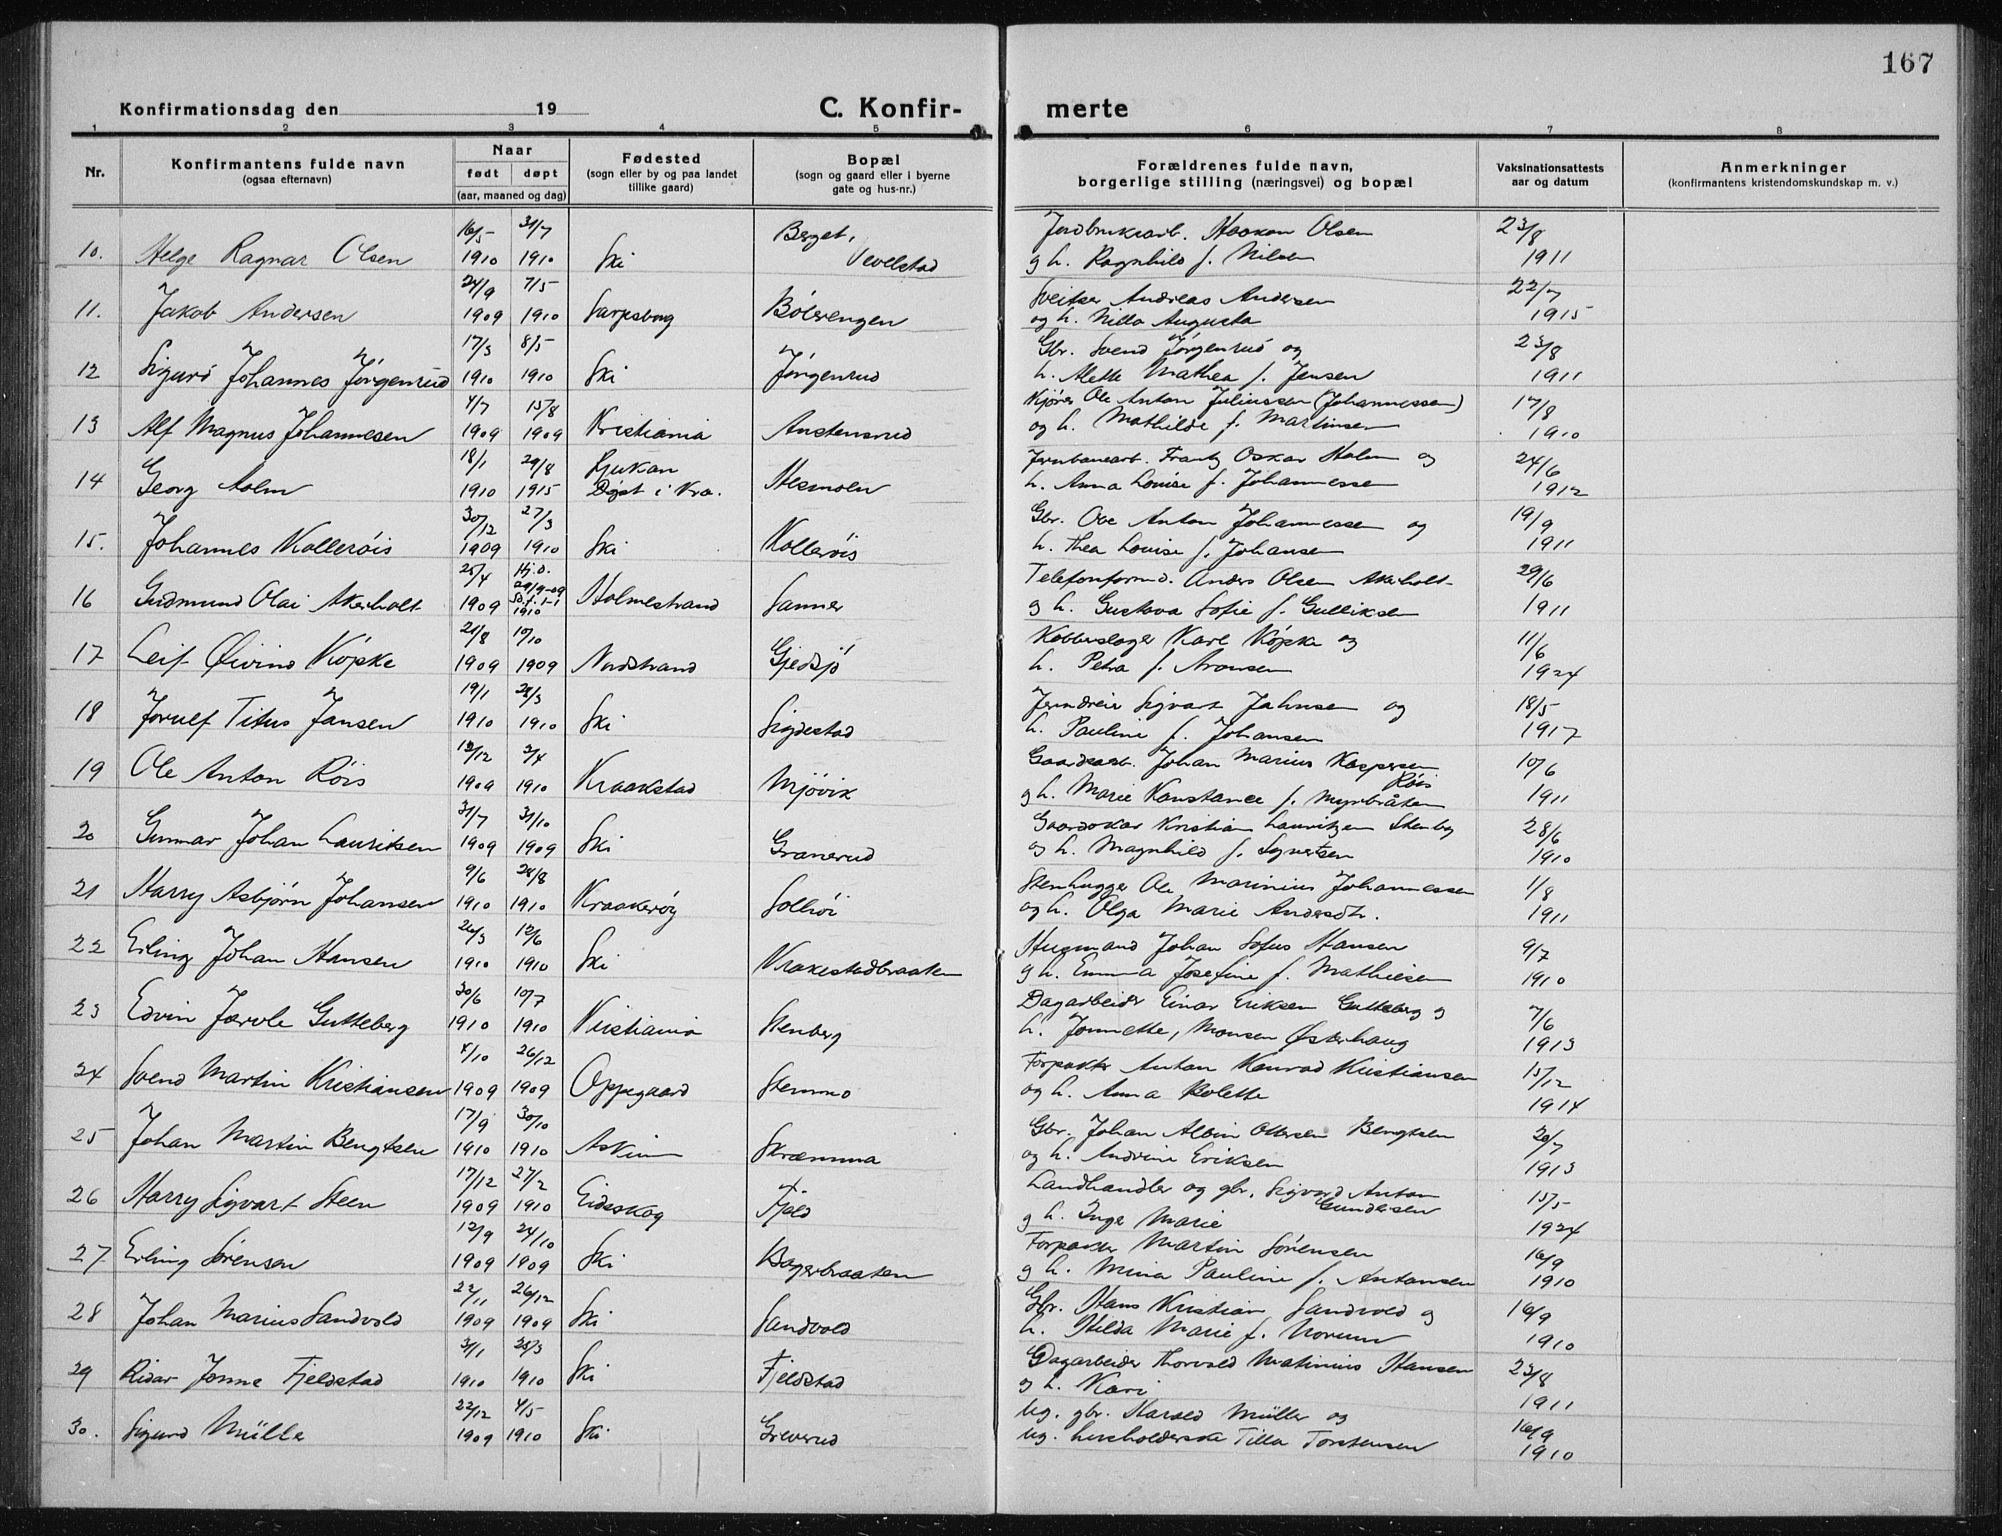 167
Konfirmationsdag den 19
C. Konfir- merte
1 2 3 4 5 6 7 8
Nr.
Konfirmantens fulde navn
(ogsaa efternavn)
Naar
født døpt
(aar, maaned og dag)
Fødested
(sogn eller by og paa landet
tillike gaard)
Bopæl
(sogn og gaard eller i byerne
gate og hus-nr.)
Forældrenes fulde navn,
borgerlige stilling (næringsvei) og bopæl
Vaksinationsattests
aar og datum
Anmerkninger
(konfirmantens kristendomskundskap m. v.)
16/5 31/7 Berget, Jordbruksarb. Haakon Olsen 23/8
10. Helge Ragnar Olsen 1910 1910 Ski Vevelstad og h. Ragnhild f. Nilsen 1911
24/9 7/5 Sveitser Andreas Andersen 22/7
11. Jakob Andersen 1909 1910 Sarpsborg Bölerengen og h. Milla Augusta 1915
17/3 8/5 Gbr. Svend Jörgenrud og 23/8
12 Sigurd Johannes Jörgenrud 1910 1910 Ski Jörgenrud h. Mette Mathea f. Jensen 1911
4/7 15/8 Kjörer Ole Anton Juliussen (Johannessen) 17/8
13 Alf Magnus Johannesen 1909 1909 Kristiania Austensrud og h. Mathilde f. Martinsen 1910
18/1 29/8 Rjukan Jernbanearb. Frantz Oskar Holm og 24/6
14 Georg Holm 1910 1915 Døpt i Kra. Hesmolen h. Anna Louise f. Johannessen 1912
30/12 27/3 Gbr. Ove Anton Johannessen og 19/9
15. Johannes Kolleröis 1909 1910 Ski Kolleröis h. Thea Louise f. Johansen 1911
25/4 Hj.d. 29/9-09 Telefonformd. Anders Olsen Akerholt 29/6
16 Gudmund Olai Akerholt 1909 1910 Holmestrand Sanner og h. Gustava Sofie f. Gulliksen 1911
21/8 10/10 Kobberslager Karl Köpke og 11/6
17 Leif Öivind Köpke 1909 1909 Nordstrand Gjedsjö h. Petra f. Aronsen 1924
19/1 28/3 Jerndreier Sigvart Jahnsen og 18/5
18 Jorulf Titus Jansen 1910 1910 Ski Sigdestad h. Pauline f. Johansen 1917
12/12 3/4 Gaardsarb. Johan Marius Kaspersen Röis 10/6
19 Ole Anton Röis 1909 1910 Kraakstad Mjövik og h. Marie Konstance f. Myrbråten 1911
31/7 31/10 Kristian Lauritzen Stenberg 28/6
20 Gunnar Johan Lauritsen 1909 1909 Ski Granerud og h. Magnhild f. Syvertsen 1910
9/6 28/8 Stenhugger Ole Marinius Johannessen 1/8
21 Harry Asbjörn Johansen 1910 1910 Kraakeröy Solhöi og h. Olga Marie Andersdtr. 1911
26/3 12/6 Hugmand Johan Sofus Hansen 9/7
22 Erling Johan Hansen 1910 1910 Ski Krakestadbraaten og h. Emma Josefine f. Mathiesen 1910
30/6 10/7 Dagarbeider Einar Eriksen Gutteberg og 7/6
23 Edvin Jarle Gutteberg 1910 1910 Kristiania Stenberg h. Jonnette, Monsen Østerhaug 1913
4/10 26/12 Forpakter Anton Konrad Kristiansen 15/12
24 Svend Martin Kristiansen 1909 1909 Oppegaard Stenmo og h. Anna Bolette 1914
17/9 30/10 Gbr. Johan Albin Ottersen Bengtsen 20/7
25 Johan Martin Bengtsen 1910 1910 Askim Skræmma og h. Andrine Eriksen 1913
17/12 27/2 Landhandler og gbr. Sigvard Anton Gundersen 15/5
26 Harry Sigvart Steen 1909 1910 Eidsskog Fjeld og h. Inga Marie 1924
12/9 24/10 Forpakter Martin Sörensen 16/9
27 Erling Sörensen 1909 1909 Ski Bagerbraaten og h. Mina Pauline f. Antonsen 1910
22/11 26/12 Gbr. Hans Kristian Sandvold og 16/9
28 Johan Marius Sandvold 1909 1909 Ski Sandvold h. Hilda Marie f. Norum 1910
3/1 25/3 Dagarbeider Thorvald Matinius Hansen 23/8
29 Ridar Jonne Fjeldstad 1910 1910 Ski Fjeldstad og h. Kari 1911
22/12 4/5 Ug. gbr. Harald Müller og 16/9
30. Sigurd Mülle 1909 1910 Ski Greverud ug. husholderske Tilla Torstensen 1910